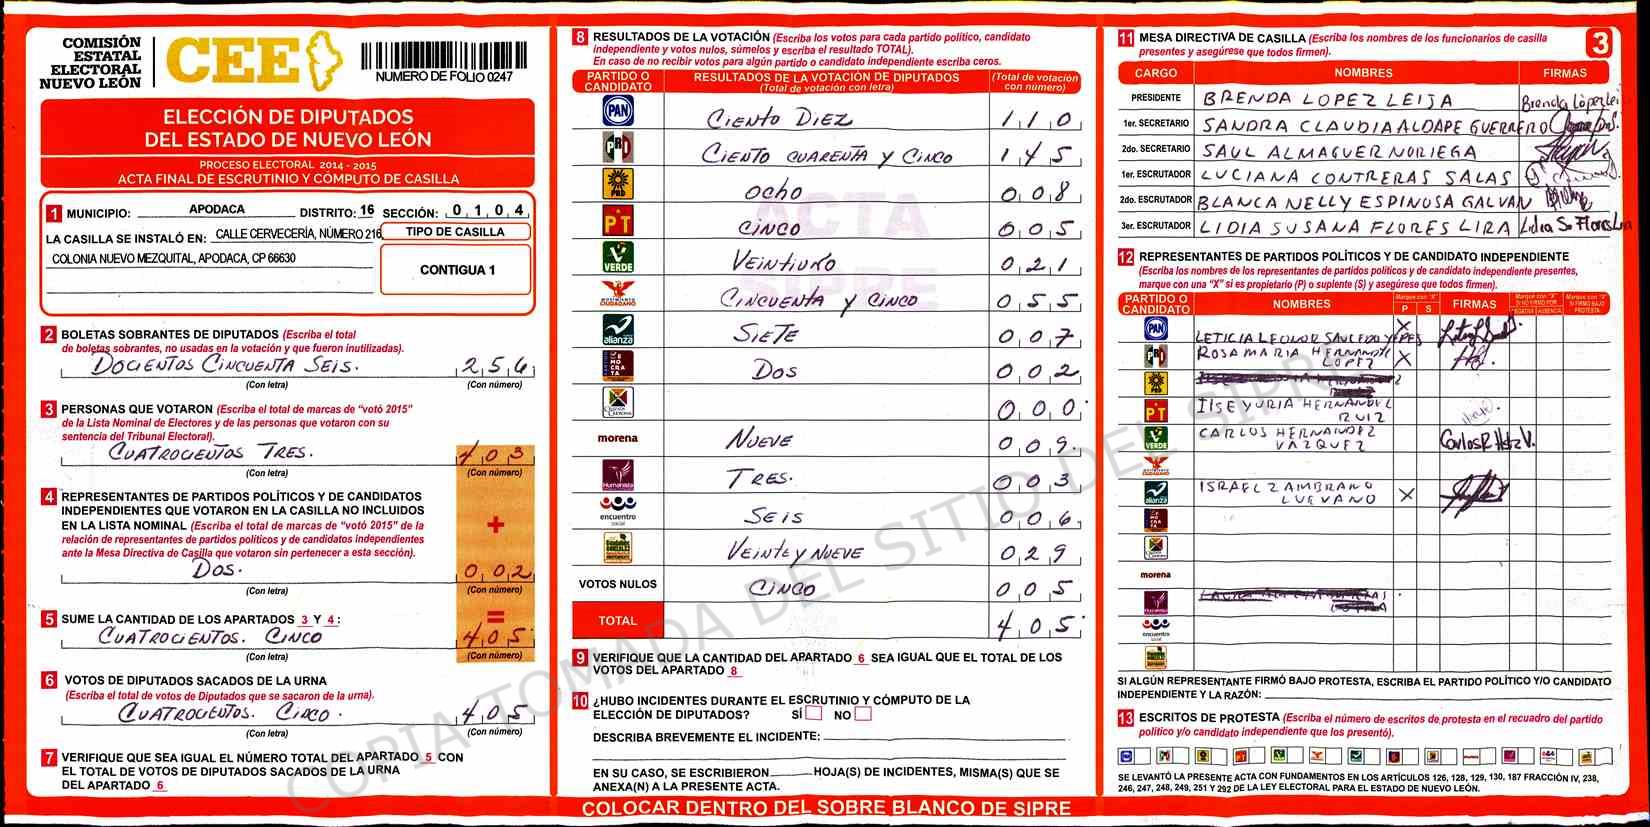 COMISIÓN
ESTATAL
ELECTORAL
NUEVO LEÓN
CEE
NUMERO DE FOLIO 0247
ELECCIÓN DE DIPUTADOS
DEL ESTADO DE NUEVO LEÓN
PROCESO ELECTORAL 2014 - 2015
ACTA FINAL DE ESCRUTINIO Y CÓMPUTO DE CASILLA
1 MUNICIPIO: APODACA DISTRITO: 16 SECCIÓN: 0104
LA CASILLA SE INSTALÓ EN: CALLE CERVECERÍA, NÚMERO 216
COLONIA NUEVO MEZQUITAL, APODACA, CP 66630
TIPO DE CASILLA
CONTIGUA 1
2 BOLETAS SOBRANTES DE DIPUTADOS (Escriba el total
de boletas sobrantes, no usadas en la votación y que fueron inutilizadas).
DOCIENTOS CINCUENTA SEIS. 256
(Con letra) (Con número)
3 PERSONAS QUE VOTARON (Escriba el total de marcas de "votó 2015"
de la Lista Nominal de Electores y de las personas que votaron con su
sentencia del Tribunal Electoral).
CUATROCIENTOS TRES. 403
(Con letra) (Con número)
4 REPRESENTANTES DE PARTIDOS POLÍTICOS Y DE CANDIDATOS
INDEPENDIENTES QUE VOTARON EN LA CASILLA NO INCLUIDOS
EN LA LISTA NOMINAL (Escriba el total de marcas de "votó 2015" de la
relación de representantes de partidos políticos y de candidatos independientes
ante la Mesa Directiva de Casilla que votaron sin pertenecer a esta sección).
+
DOS. 002
(Con letra) (Con número)
=
5 SUME LA CANTIDAD DE LOS APARTADOS 3 Y 4:
CUATROCIENTOS. CINCO 405
(Con letra) (Con número)
6 VOTOS DE DIPUTADOS SACADOS DE LA URNA
(Escriba el total de votos de Diputados que se sacaron de la urna).
CUATROCIENTOS. CINCO. 405
(Con letra) (Con número)
7 VERIFIQUE QUE SEA IGUAL EL NÚMERO TOTAL DEL APARTADO 5 CON
EL TOTAL DE VOTOS DE DIPUTADOS SACADOS DE LA URNA
DEL APARTADO 6
8 RESULTADOS DE LA VOTACIÓN (Escriba los votos para cada partido político, candidato
independiente y votos nulos, súmelos y escriba el resultado TOTAL).
En caso de no recibir votos para algún partido o candidato independiente escriba ceros.
PARTIDO O CANDIDATO RESULTADOS DE LA VOTACIÓN DE DIPUTADOS (Total de votación con letra) (Total de votación con número)
PAN CIENTO DIEZ 110
PRI CIENTO CUARENTA Y CINCO 145
PRD OCHO 008
PT CINCO 005
VERDE VEINTIUNO 021
MOVIMIENTO CIUDADANO CINCUENTA Y CINCO 055
alianza SIETE 007
DEMOCRATA DOS 002
000
morena NUEVE 009
Humanista TRES. 003
encuentro social SEIS 006
VEINTE Y NUEVE 029
VOTOS NULOS CINCO 005
TOTAL 405
ACTA
SIPRE
9 VERIFIQUE QUE LA CANTIDAD DEL APARTADO 6 SEA IGUAL QUE EL TOTAL DE LOS
VOTOS DEL APARTADO 8
10 ¿HUBO INCIDENTES DURANTE EL ESCRUTINIO Y CÓMPUTO DE LA
ELECCIÓN DE DIPUTADOS? SÍ NO
DESCRIBA BREVEMENTE EL INCIDENTE:
EN SU CASO, SE ESCRIBIERON HOJA(S) DE INCIDENTES, MISMA(S) QUE SE
ANEXA(N) A LA PRESENTE ACTA.
COLOCAR DENTRO DEL SOBRE BLANCO DE SIPRE
11 MESA DIRECTIVA DE CASILLA (Escriba los nombres de los funcionarios de casilla
presentes y asegúrese que todos firmen).
3
CARGO NOMBRES FIRMAS
PRESIDENTE BRENDA LOPEZ LEIJA Brenda López Lei
1er. SECRETARIO SANDRA CLAUDIA ALDAPE GUERRERO
2do. SECRETARIO SAUL ALMAGUER NORIEGA
1er. ESCRUTADOR LUCIANA CONTRERAS SALAS
2do. ESCRUTADOR BLANCA NELLY ESPINOSA GALVAN
3er. ESCRUTADOR LIDIA SUSANA FLORES LIRA Lidia S. Flores Lira
12 REPRESENTANTES DE PARTIDOS POLÍTICOS Y DE CANDIDATO INDEPENDIENTE
(Escriba los nombres de los representantes de partidos políticos y de candidato independiente presentes,
marque con una "X" si es propietario (P) o suplente (S) y asegúrese que todos firmen).
PARTIDO O CANDIDATO NOMBRES Marque con "X" P S FIRMAS Marque con "X" SI NO FIRMÓ POR NEGATIVA AUSENCIA Marque con "X" SI FIRMÓ BAJO PROTESTA
PAN LETICIA LEONOR SAUCEDO YEPES X
PRI ROSA MARIA HERNANDEZ LOPEZ X
PRD
PT ILSE YURIA HERNANDEZ RUIZ
VERDE CARLOS HERNANDEZ VAZQUEZ Carlos R. Hdz V.
alianza ISRAEL ZAMBRANO LUEVANO X
morena
Humanista
encuentro social
SI ALGÚN REPRESENTANTE FIRMÓ BAJO PROTESTA, ESCRIBA EL PARTIDO POLÍTICO Y/O CANDIDATO
INDEPENDIENTE Y LA RAZÓN:
13 ESCRITOS DE PROTESTA (Escriba el número de escritos de protesta en el recuadro del partido
político y/o candidato independiente que los presentó).
SE LEVANTÓ LA PRESENTE ACTA CON FUNDAMENTOS EN LOS ARTÍCULOS 126, 128, 129, 130, 187 FRACCIÓN IV, 238,
246, 247, 248, 249, 251 Y 292 DE LA LEY ELECTORAL PARA EL ESTADO DE NUEVO LEÓN.
COPIA TOMADA DEL SITIO DEL SIPRE